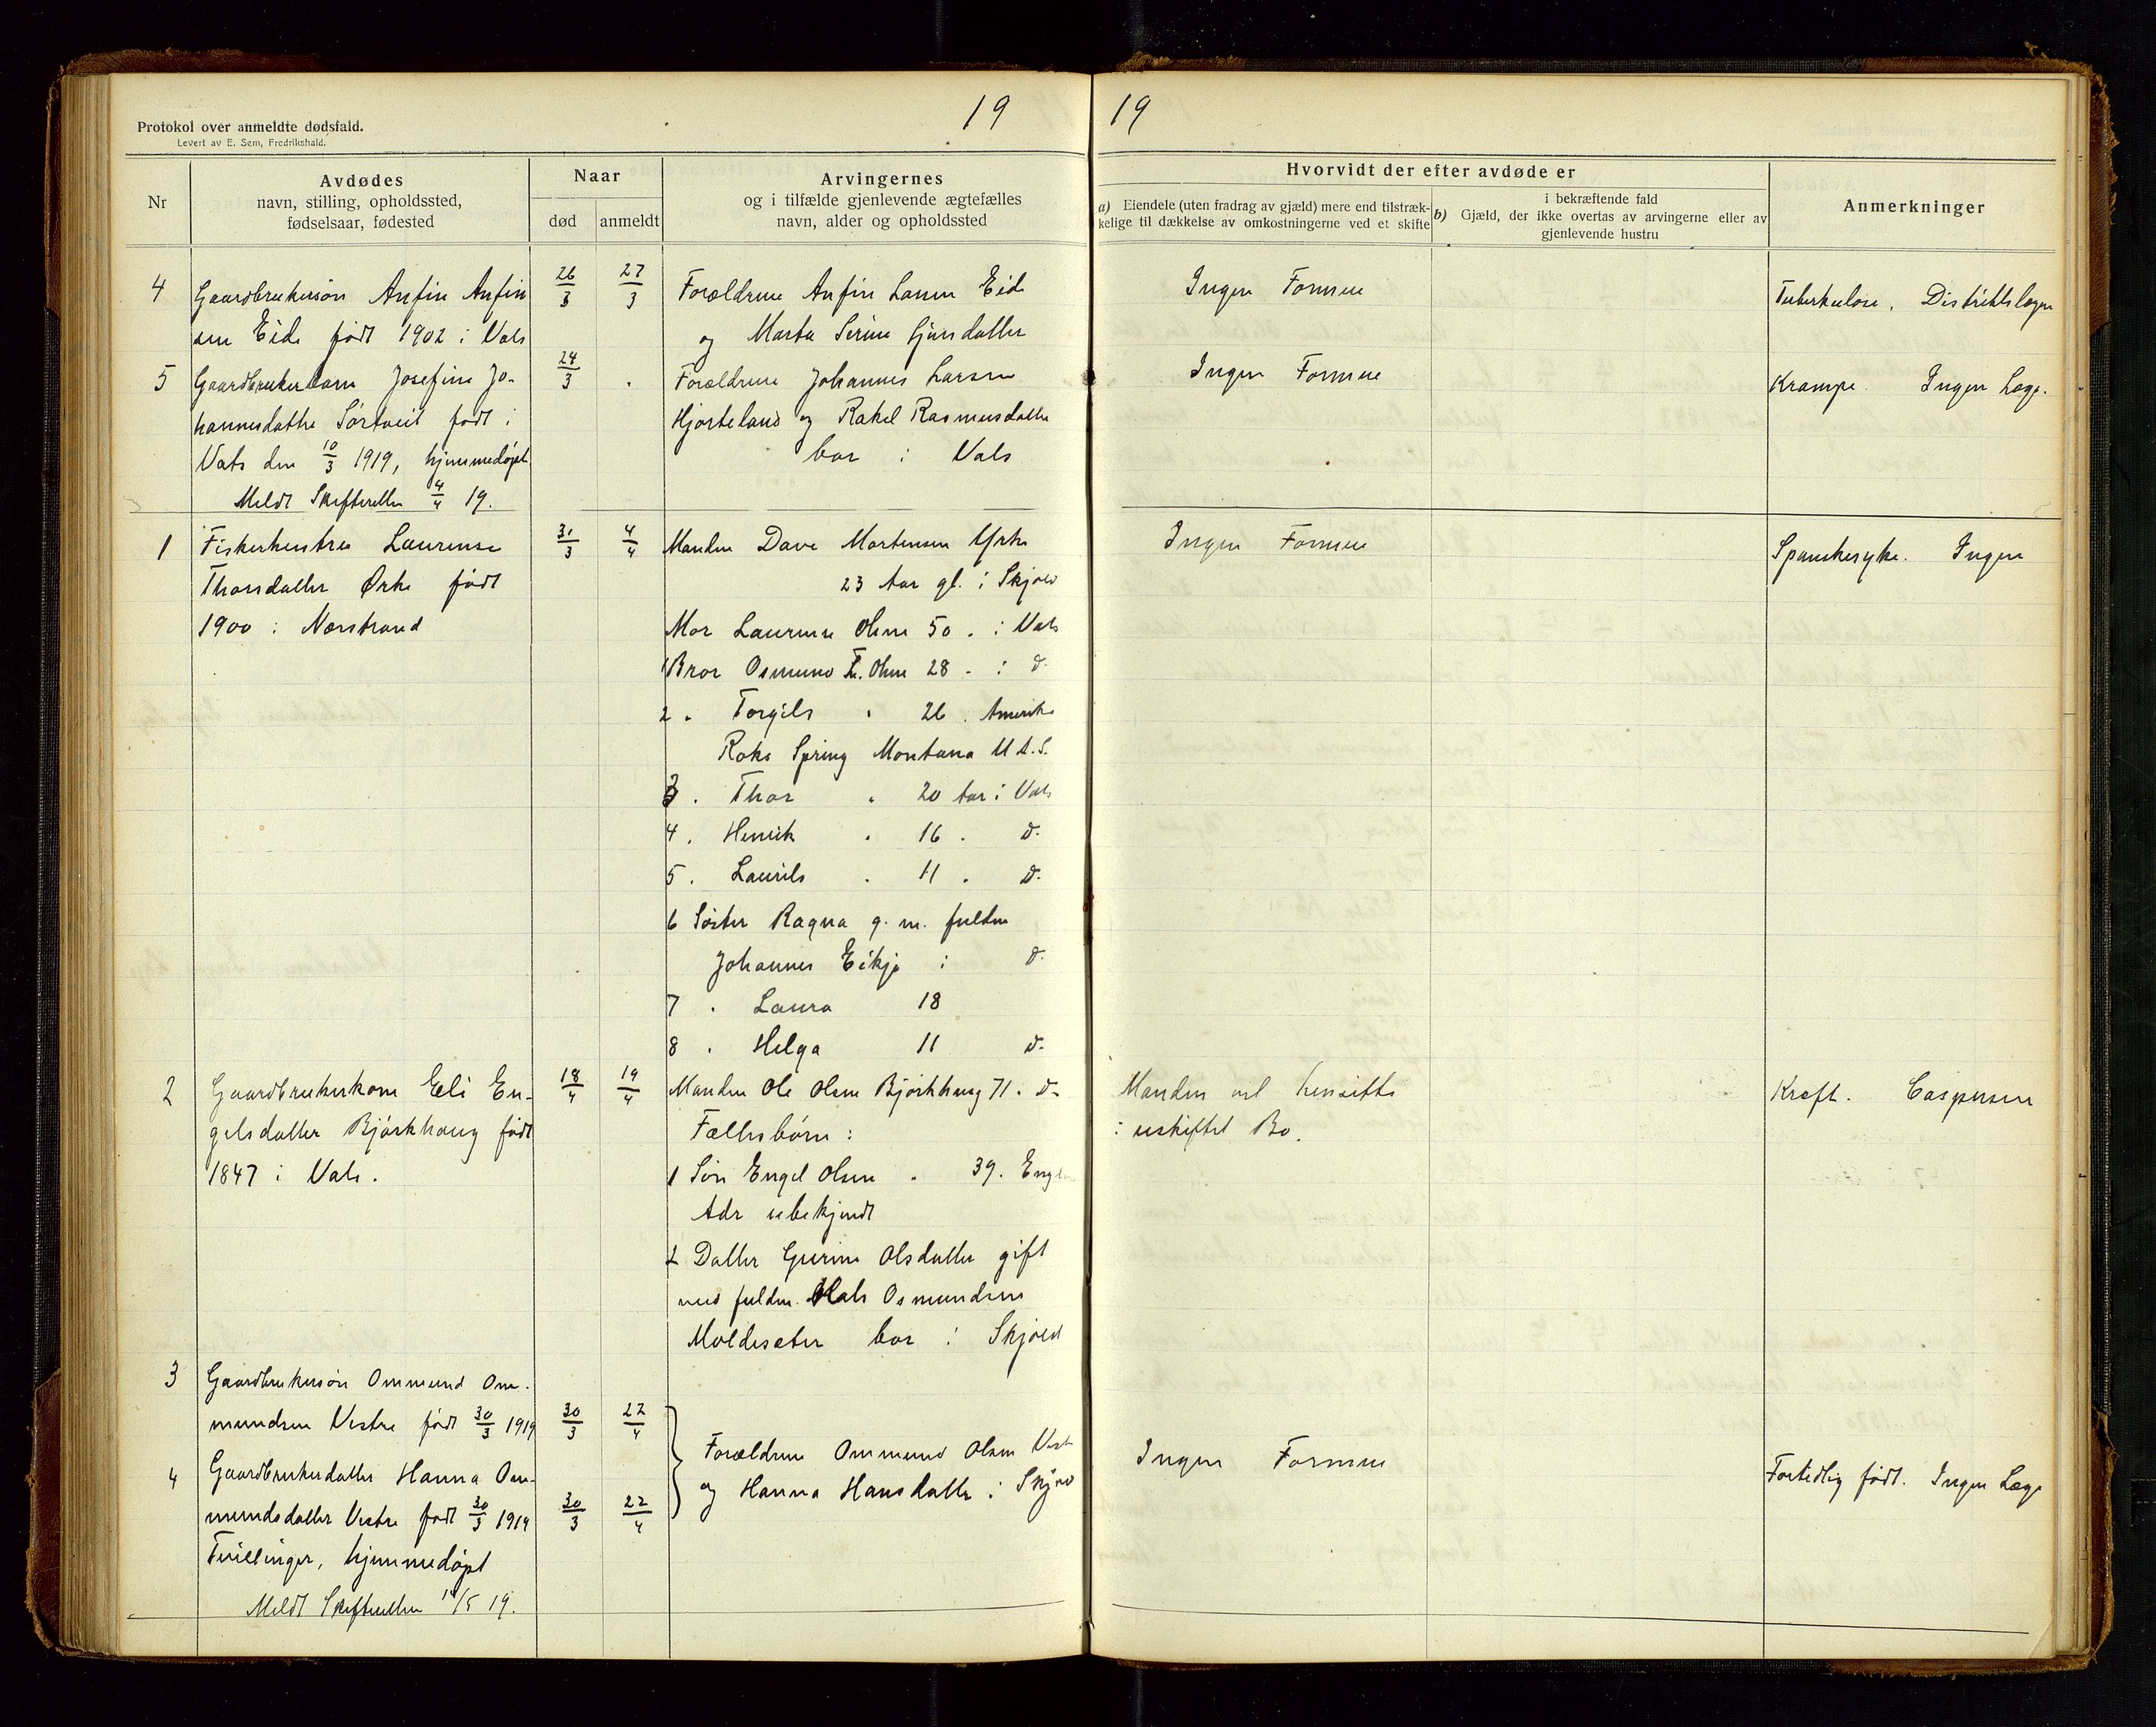 19
19
Protokol over anmeldte dødsfald.
Levert av E. Sem, Fredrikshald.
Nr
Avdødes
navn, stilling, opholdssted,
fødselsaar, fødested
Naar
død
anmeldt
Arvingernes
og i tilfælde gjenlevende ægtefælles
navn, alder og opholdssted
Hvorvidt der efter avdøde er
a) Eiendele (uten fradrag av gjæld) mere end tilstræk-
kelige til dækkelse av omkostningerne ved et skifte
i bekræftende fald
b) Gjæld, der ikke overtas av arvingerne eller av
gjenlevende hustru
Anmerkninger
4 Gaardbrukersøn Anfin Anfin 26/3 27/3 Forældrene Anfin Larsen Eide Ingen Formue Tuberkulose. Distriktslægen
sen Eide født 1902 i Vats og Marta Serine Gjersdatter
5 Gaardbrukerbarn Josefine Jo- 24/3 " Forældrene Johannes Larsen Ingen Formue Krampe. Ingen Læge.
hannesdatter Sørtveit født i Hjorteland og Rakel Rasmusdatter
Vats den 10/3 1919, hjemmedøpt bor i Vats
Meldt Skifteretten 4/4 19.
1 Fiskerhustru Laurense 31/3 4/4 Manden Dave Mortensen Yrke Ingen Formue Spanskesyke. Ingen
Thorsdatter Ørke født 23 Aar gl. i Skjold
1900 i Nerstrand
Mor Laurense Olsen 50 " i Vats
1 Bror Osmund T. Olsen 28 " i d.
2 " Torgils " 26 " Amerika
Roks Spring Montana U.S.
3 " Thor " 20 Aar i Vats
4 " Henrik " 16 " d.
5 " Laurits " 11 " d.
6 Søster Ragna g. m. fulden
Johannes Eikje i d.
7 " Laura 18
8 " Helga 11 d.
2 Gaardbrukerkone Eli En- 18/4 19/4 Manden Ole Olsen Bjørkhaug 71 " d. Manden vil hensitte Kræft. Caspersen
gelsdatter Bjørkhaug født Fællesbørn: i uskiftet Bo.
1847 i Vats.
1 Søn Engel Olsen " 39.
Adr ubekjendt
2 Datter Gurine Olsdatter gift
med fulden. Osmundsen
Moldesæter bor i Skjold
3 Gaardbrukersøn Ommund Om-
mundsen Vestre født 30/3 1919 30/3 22/4
Forældrene Ommund Olsen Ingen Formue
4 Gaardbrukerdatter Hanna Om- og Hanna Hansdatter i Skjold Fortidlig født. Ingen Læge
mundsdatter Vestre født 30/3 1919 30/3 22/4
Tvillinger, hjemmedøpt
Meldt Skifteretten /5 19.